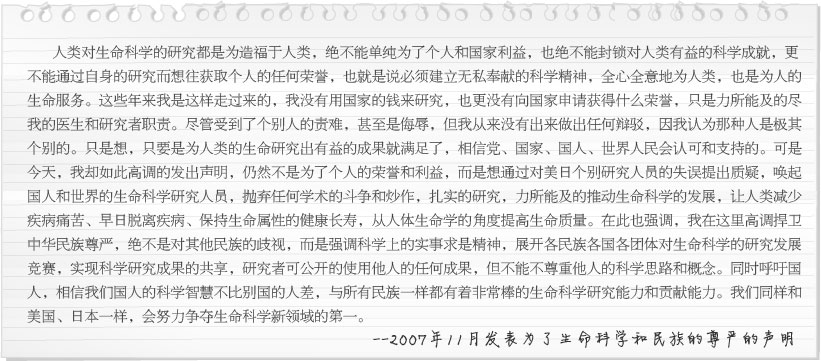 人类对生命科学的研究都是为造福于人类，绝不能单纯为了个人和国家利益，也绝不能封锁对人类有益的科学成就，更
不能通过自身的研究而想往获取个人的任何荣誉，也就是说必须建立无私奉献的科学精神，全心全意地为人类，也是为人的
生命服务。这些年来我是这样走过来的，我没有用国家的钱来研究，也更没有向国家申请获得什么荣誉，只是力所能及的尽
我的医生和研究者职责。尽管受到了个别人的责难，甚至是侮辱，但我从来没有出来做出任何辩驳，因我认为那种人是极其
个别的。只是想，只要是为人类的生命研究出有益的成果就满足了，相信党、国家、国人、世界人民会认可和支持的。可是
今天，我却如此高调的发出声明，仍然不是为了个人的荣誉和利益，而是想通过对美日个别研究人员的失误提出质疑，唤起
国人和世界的生命科学研究人员，抛弃任何学术的斗争和炒作，扎实的研究，力所能及的推动生命科学的发展，让人类减少
疾病痛苦、早日脱离疾病、保持生命属性的健康长寿，从人体生命学的角度提高生命质量。在此也强调，我在这里高调捍卫
中华民族尊严，绝不是对其他民族的歧视，而是强调科学上的实事求是精神，展开各民族各国各团体对生命科学的研究发展
竞赛，实现科学研究成果的共享，研究者可公开的使用他人的任何成果，但不能不尊重他人的科学思路和概念。同时呼吁国
人，相信我们国人的科学智慧不比别国的人差，与所有民族一样都有着非常棒的生命科学研究能力和贡献能力。我们同样和
美国、日本一样，会努力争夺生命科学新领域的第一。
--2007年11月发表为了生命科学和民族的尊严的声明